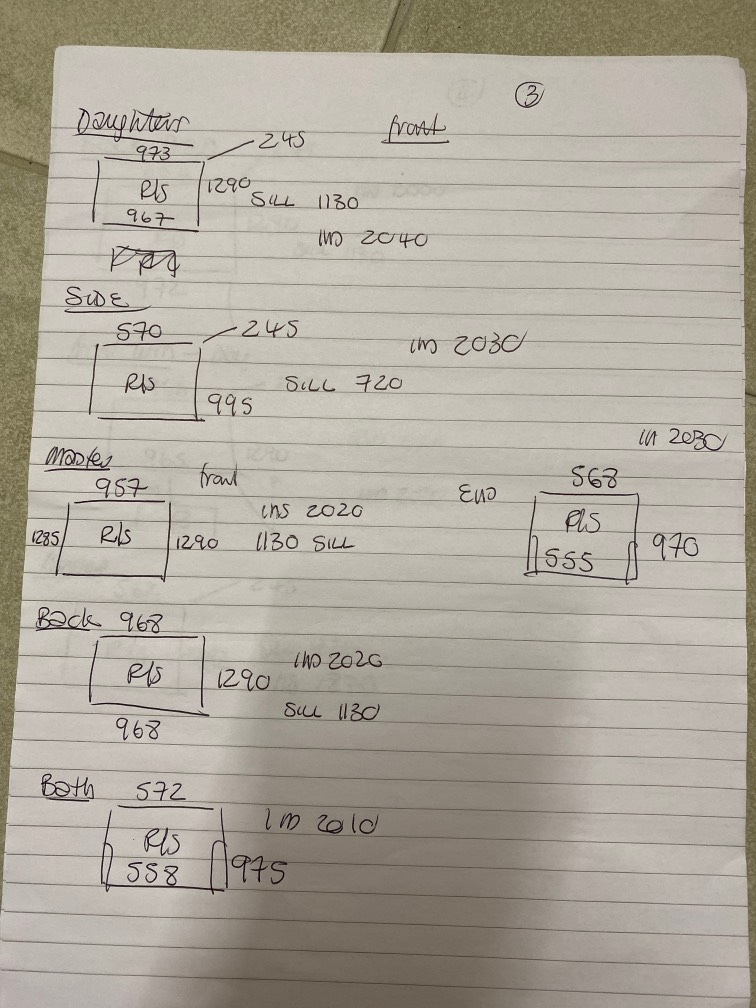 ③
Daughters front
973 245
R/S 1290 SILL 1130
967
IND 2040
SIDE
570 245 IND 2030
R/S SILL 720
995
Master front
957 INS 2020
1285 R/S 1290 1130 SILL
IN 2030
END 568
R/S
555 970
Back 968
R/S 1290 IND 2020
SILL 1130
968
Bath 572 IND 2010
R/S
558 975